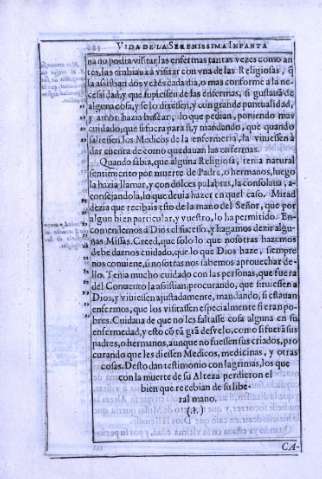 VIDA DE LA SERENISSIMA INFANTA
na no podia visitar las enfermas tantas vezes como an-
tes, las embiaua à visitar con vna de las Religiosas, q̃
la assistia dos vezes cada dia, o mas conforme a la ne-
cessidad, y que supiessen de las enfermas, si gustauã de
alguna cosa, y se lo diessen, y con grande puntualidad,
y amor hazia buscar, lo que pedian, poniendo mas
cuidado, que si fuera para si, y mandando, que quando
saliessen los Medicos de la enfermeria, la viniessen à
dar cuenta de como quedauan las enfermas.
Quando sabia, que alguna Religiosa, tenia natural
sentimiento por muerte de Padre, o hermanos, luego
la hazia llamar, y con dolces palabras, la consolaua, a-
consejandola, lo que deuia hazer en aquel caso. Mirad
dezia que recibais esto de la mano del Señor, que por
algun bien particular, y vuestro, lo ha permitido. En-
comendemos à Dios el sucesso, y hagamos dezir algu-
nas Missas. Creed, que solo lo que nosotras hazemos
debe darnos cuidado, que lo que Dios haze, siempre
nos conuiene, si nosotras nos sabemos aprouechar de-
llo. Tenia mucho cuidado con las personas, que fuera
del Conuento la assistian, procurando, que siruiessen a
Dios, y viuiessen ajustadamente, mandando, si estauan
enfermos, que los visitassen especialmente si eran po-
bres. Cuidaua de que no les faltasse cosa alguna en su
enfermedad, y esto cõ tã grã desvelo, como si fuerã sus
padres, o hermanos, aunque no fuessen sus criados, pro
curando que les diessen Medicos, medicinas, y otras
cosas. Desto dan testimonio con lagrimas, los que
con la muerte de su Alteza perdieron el
bien que recebian de su libe-
ral mano.
CA-